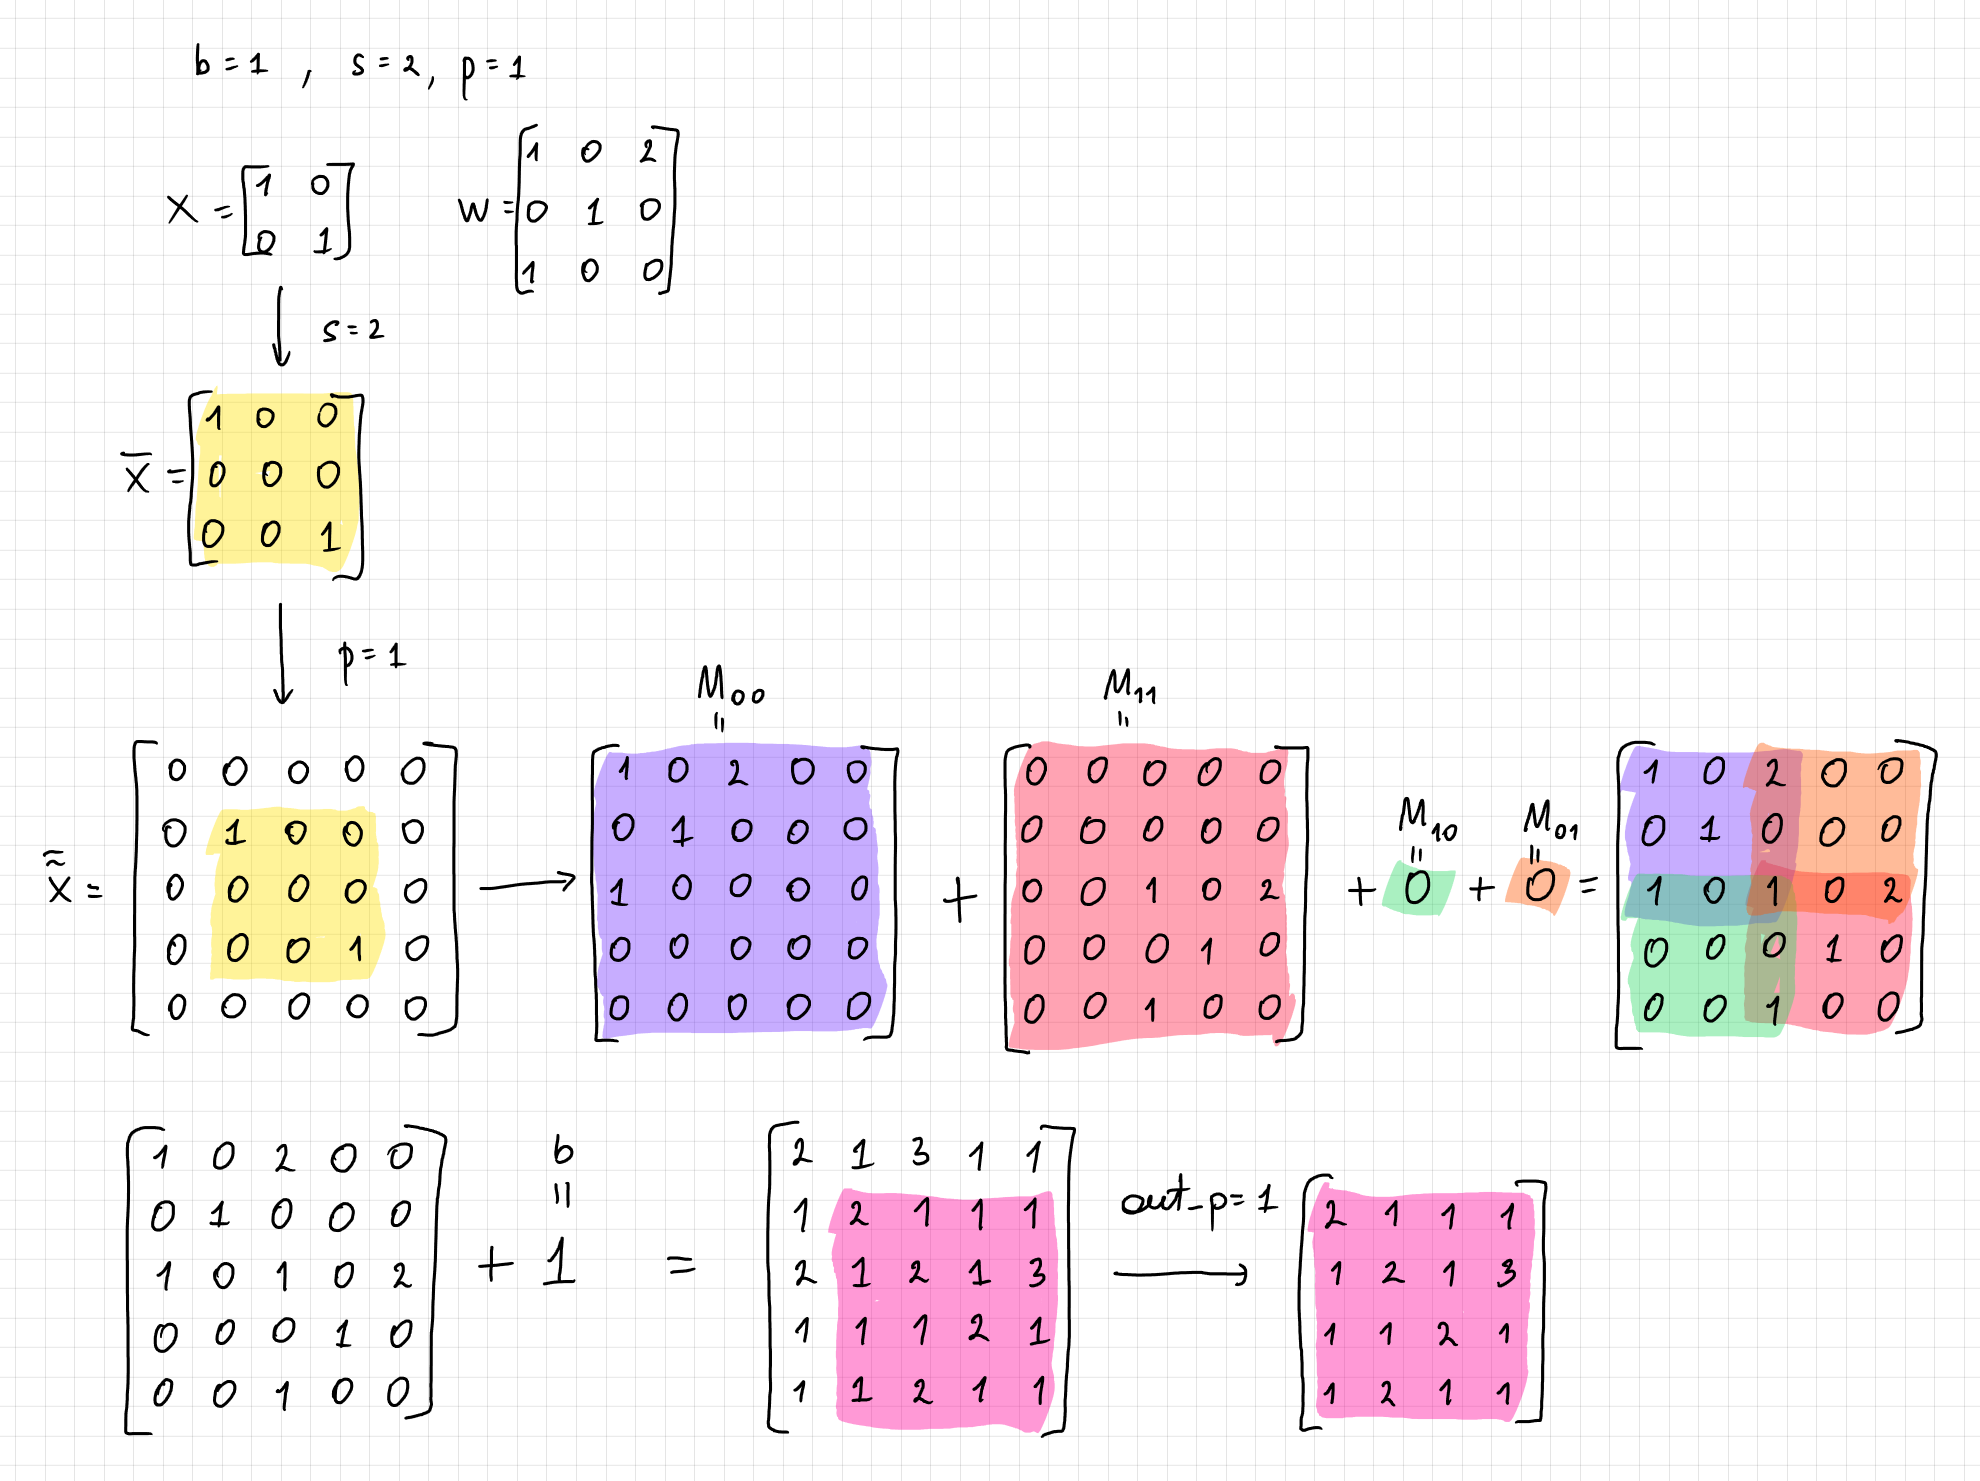 b = 1 , s = 2, p = 1
X = [1 0
0 1]
W = [1 0 2
0 1 0
1 0 0]
s = 2
X̄ = [1 0 0
0 0 0
0 0 1]
p = 1
M₀₀
=
M₁₁
=
M₁₀
=
M₀₁
=
X̃̃ = [0 0 0 0 0
0 1 0 0 0
0 0 0 0 0
0 0 0 1 0
0 0 0 0 0]
→
[1 0 2 0 0
0 1 0 0 0
1 0 0 0 0
0 0 0 0 0
0 0 0 0 0]
+
[0 0 0 0 0
0 0 0 0 0
0 0 1 0 2
0 0 0 1 0
0 0 1 0 0]
+ 0 + 0 =
[1 0 2 0 0
0 1 0 0 0
1 0 1 0 2
0 0 0 1 0
0 0 1 0 0]
[1 0 2 0 0
0 1 0 0 0
1 0 1 0 2
0 0 0 1 0
0 0 1 0 0]
b
=
+ 1 =
[2 1 3 1 1
1 2 1 1 1
2 1 2 1 3
1 1 1 2 1
1 1 2 1 1]
out_p = 1
→
[2 1 1 1
1 2 1 3
1 1 2 1
1 2 1 1]